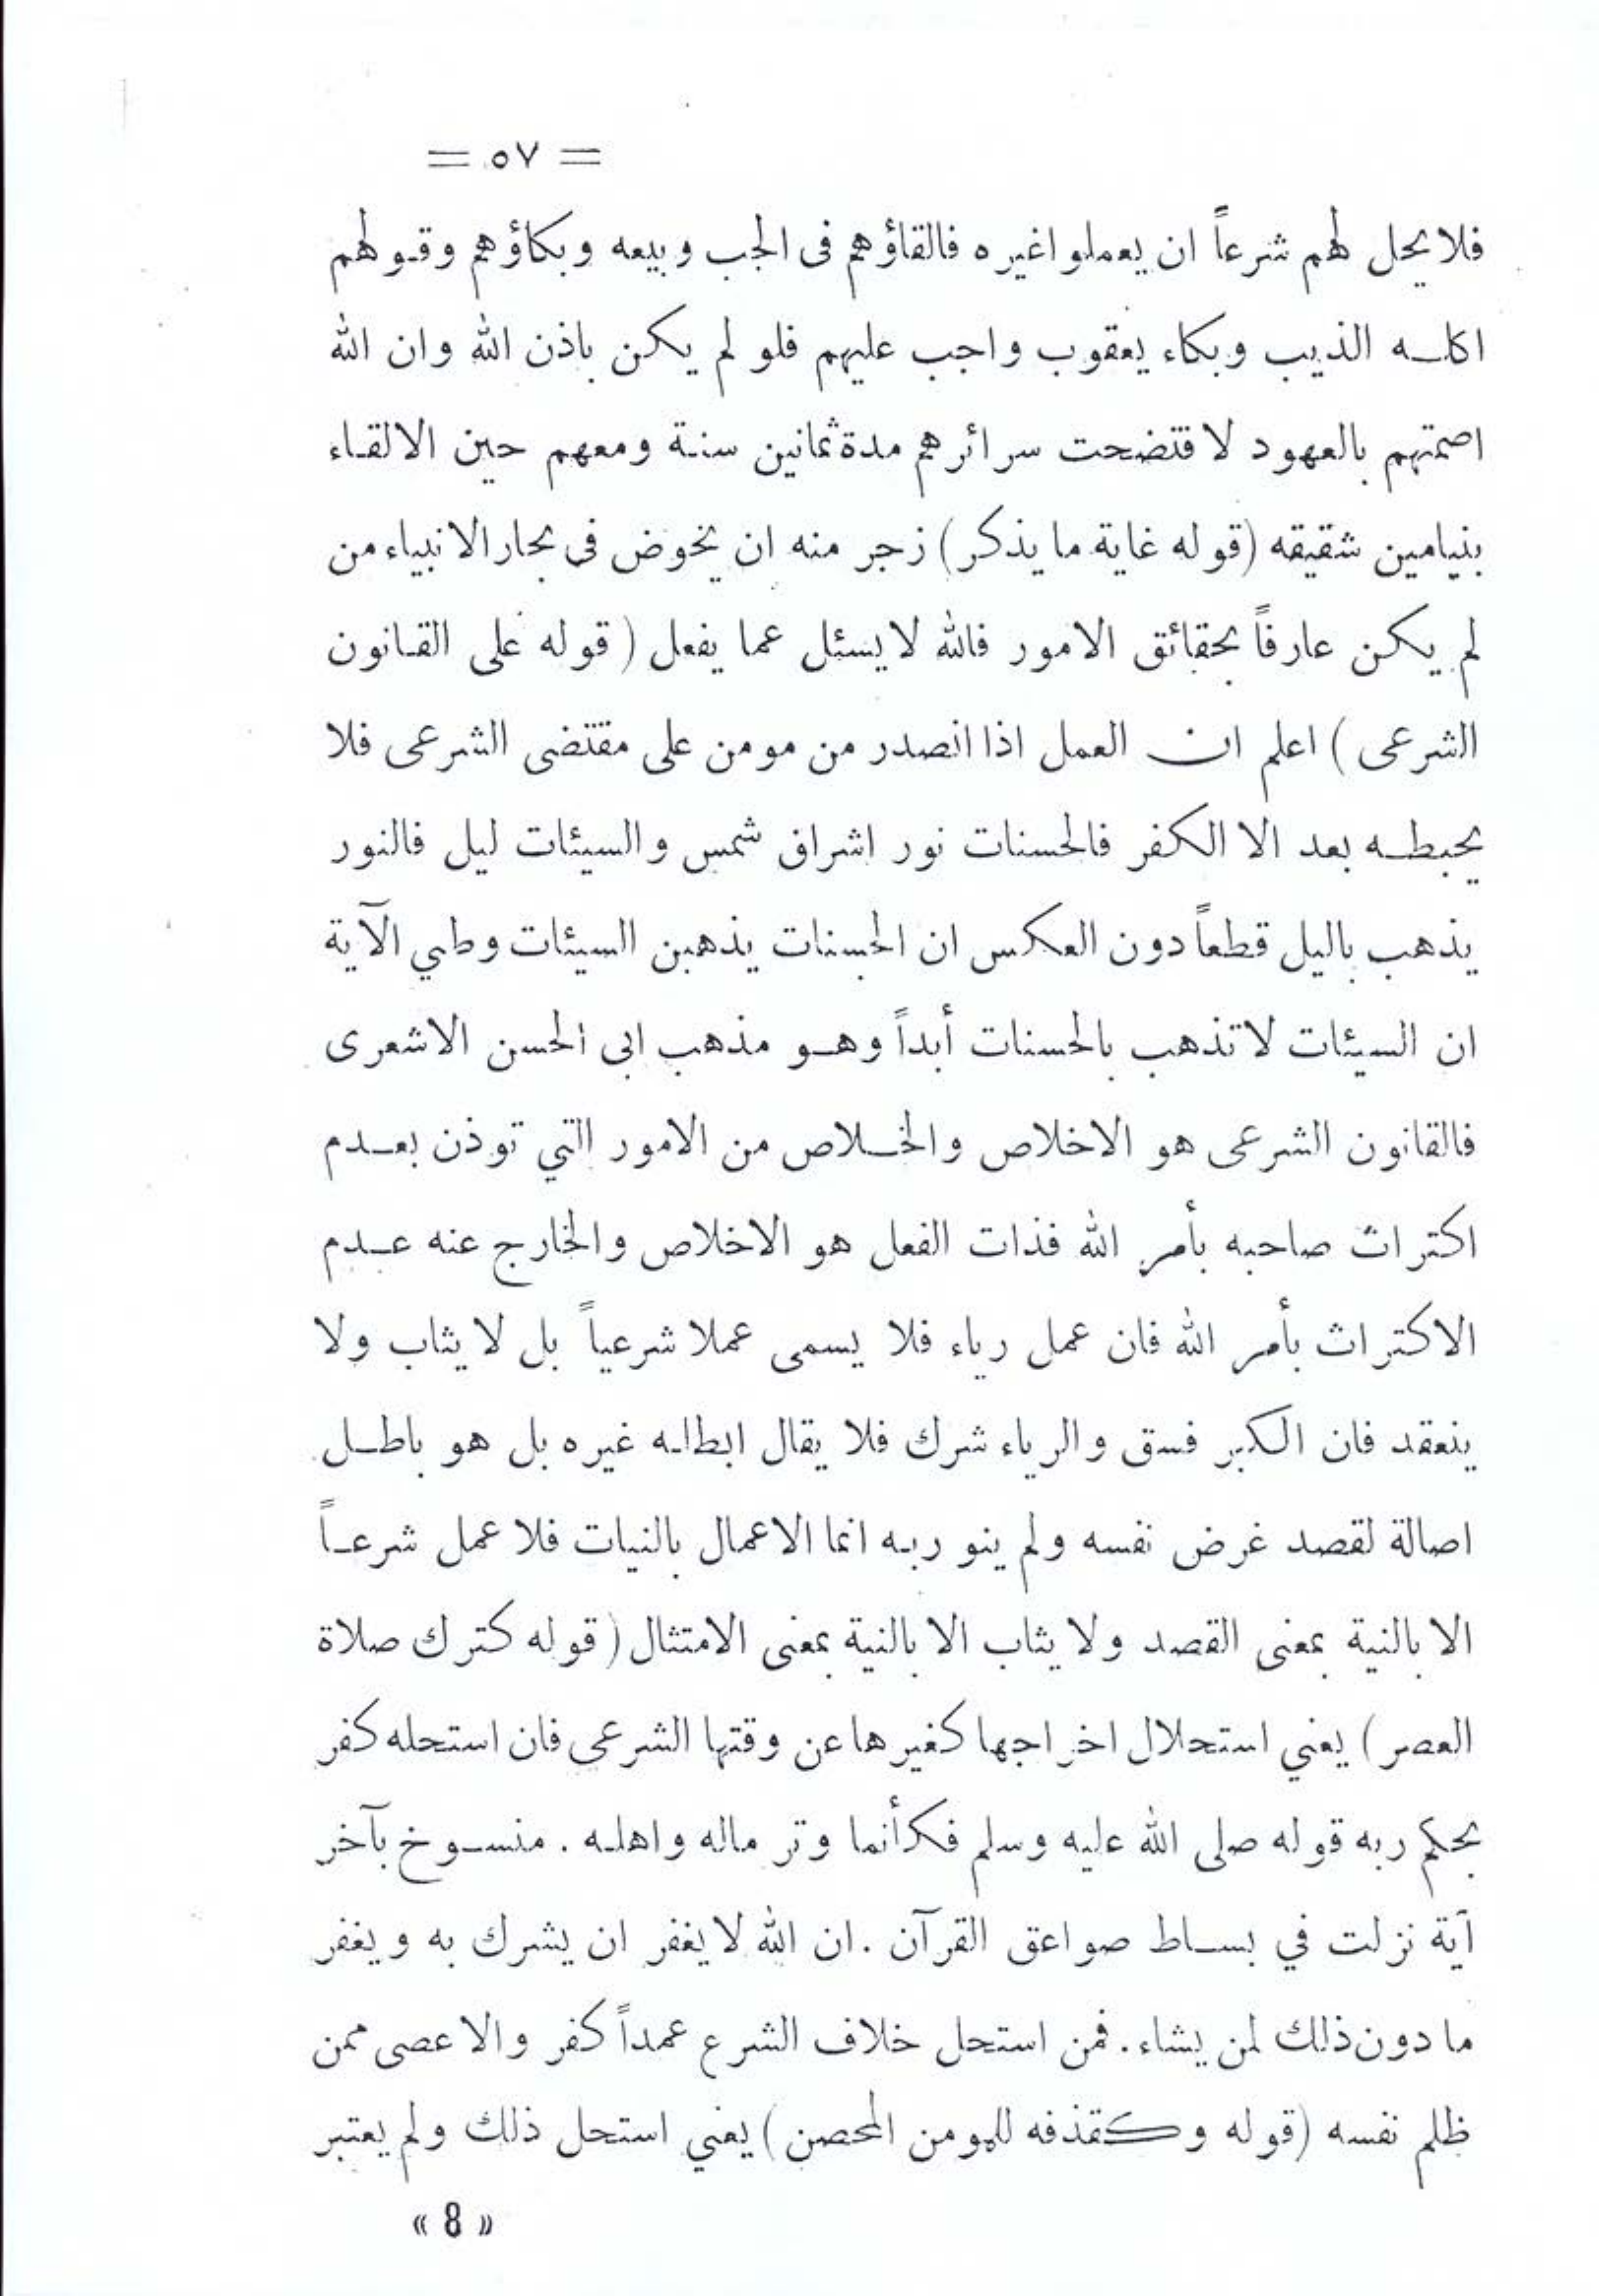 = ٥٧ =
فلا يحل لهم شرعاً ان يعملوا غيره فالقاؤهم فى الجب وبيعه وبكاؤهم وقولهم
اكله الذيب وبكاء يعقوب واجب عليهم فلو لم يكن باذن الله وان الله
اصمتهم بالعهود لافتضحت سرائرهم مدة ثمانين سنة ومعهم حين الالقاء
بنيامين شقيقه (قوله غاية ما يذكر) زجر منه ان يخوض فى بحار الانبياء من
لم يكن عارفاً بحقائق الامور فالله لا يسئل عما يفعل (قوله على القانون
الشرعى) اعلم ان العمل اذا انصدر من مومن على مقتضى الشرعى فلا
يحبطه بعد الا الكفر فالحسنات نور اشراق شمس والسيئات ليل فالنور
يذهب باليل قطعاً دون العكس ان الحسنات يذهبن السيئات وطي الآية
ان السيئات لا تذهب بالحسنات أبداً وهو مذهب ابى الحسن الاشعرى
فالقانون الشرعى هو الاخلاص والخلاص من الامور التي توذن بعدم
اكتراث صاحبه بأمر الله فذات الفعل هو الاخلاص والخارج عنه عدم
الاكتراث بأمر الله فان عمل رياء فلا يسمى عملا شرعياً بل لا يثاب ولا
ينعقد فان الكبر فسق والرياء شرك فلا يقال ابطاله غيره بل هو باطل
اصالة لقصد غرض نفسه ولم ينو ربه انما الاعمال بالنيات فلا عمل شرعاً
الا بالنية بمعنى القصد ولا يثاب الا بالنية بمعنى الامتثال (قوله كترك صلاة
العصر) يعني استحلال اخراجها كغيرها عن وقتها الشرعى فان استحله كفر
بحكم ربه قوله صلى الله عليه وسلم فكأنما وتر ماله واهله . منسوخ بآخر
آية نزلت في بساط صواعق القرآن . ان الله لا يغفر ان يشرك به ويغفر
ما دون ذلك لمن يشاء . فمن استحل خلاف الشرع عمداً كفر والا عصى ممن
ظلم نفسه (قوله وكقذفه للمومن المحصن) يعني استحل ذلك ولم يعتبر
« 8 »